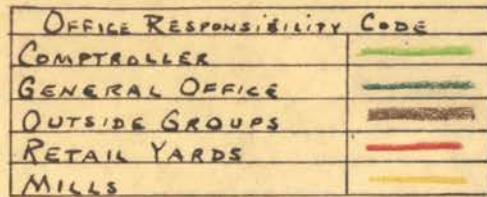 OFFICE RESPONSIBILITY CODE
COMPTROLLER
GENERAL OFFICE
OUTSIDE GROUPS
RETAIL YARDS
MILLS